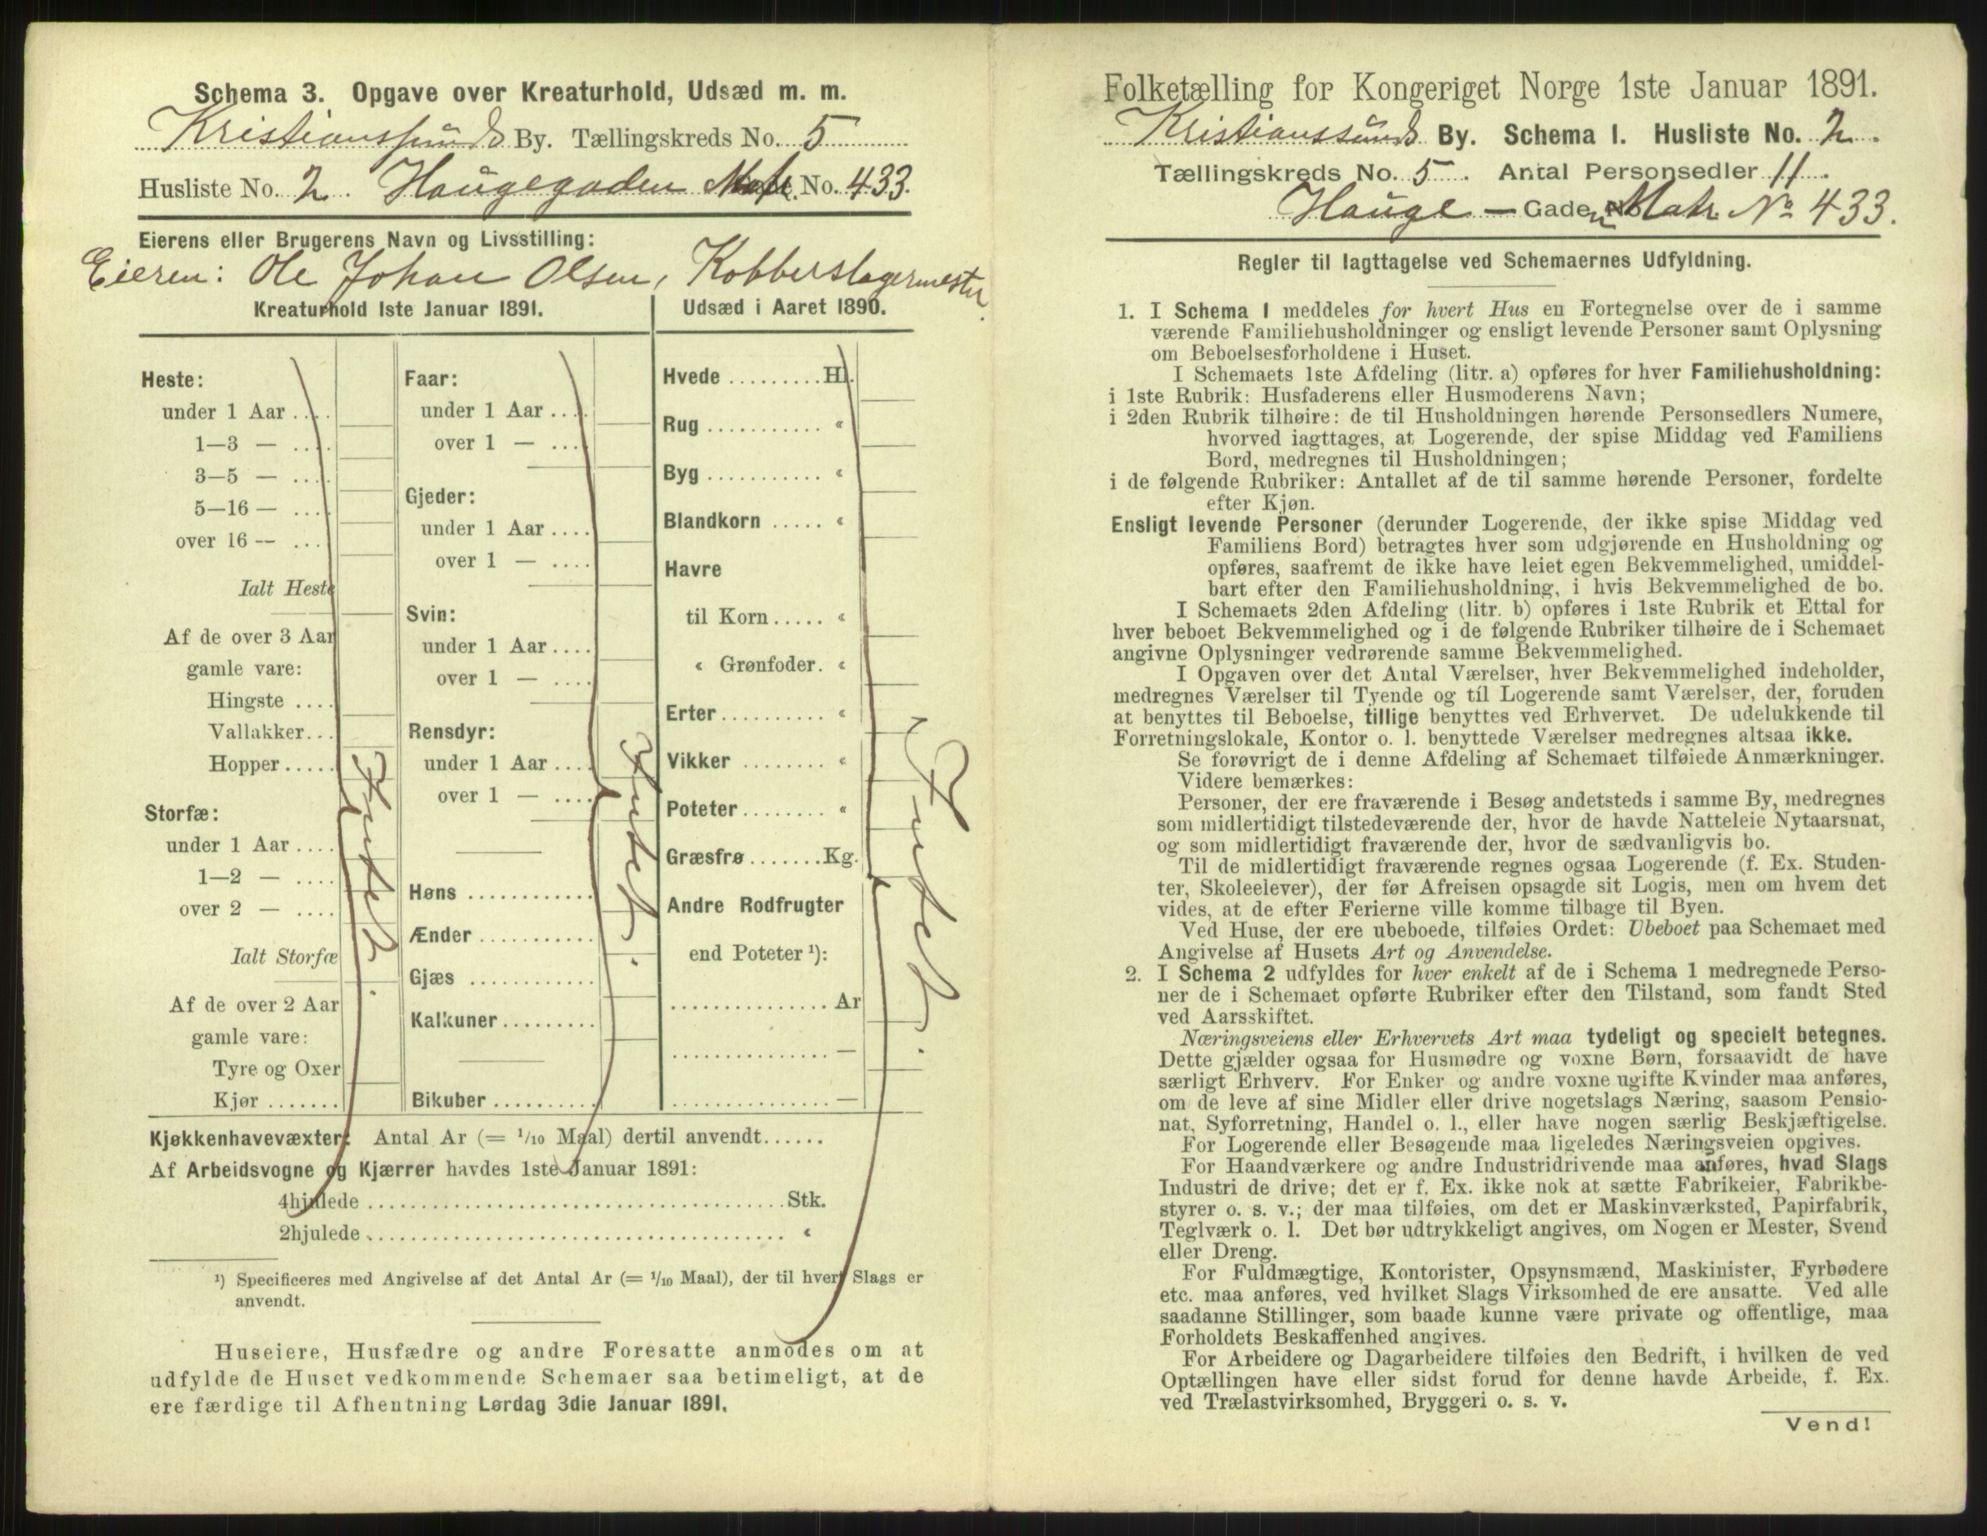 Schema 3. Opgave over Kreaturhold, Udsæd m. m.
Kristianssunds By. Tællingskreds No. 5
Husliste No. 2. Haugegaden Matr. No. 433.
Eierens eller Brugerens Navn og Livsstilling:
Eieren: Ole Johan Olsen, Kobberslagermester.
Kreaturhold 1ste Januar 1891.
Heste:
under 1 Aar ....
1—3 — ....
3—5 — ....
5—16 — ....
over 16 — ...
Ialt Heste
Af de over 3 Aar
gamle vare:
Hingste ....
Vallakker...
Hopper.....
Storfæ:
under 1 Aar ....
1—2 — ....
over 2 — ....
Ialt Storfæ
Af de over 2 Aar
gamle vare:
Tyre og Oxer
Kjør .......
Intet.
Faar:
under 1 Aar ....
over 1 — ....
Gjeder:
under 1 Aar ....
over 1 — ....
Svin:
under 1 Aar ....
over 1 — ....
Rensdyr:
under 1 Aar ....
over 1 — ....
Høns ............
Ænder ...........
Gjæs ............
Kalkuner.........
Bikuber ..........
Intet.
Udsæd i Aaret 1890.
Hvede .........Hl.
Rug ........... «
Byg ........... «
Blandkorn ..... «
Havre
til Korn..... «
« Grønfoder. «
Erter.......... «
Vikker ........ «
Poteter........ «
Græsfrø.......Kg.
Andre Rodfrugter
end Poteter ¹):
................ Ar
................ —
................ —
Intet.
Kjøkkenhavevæxter: Antal Ar (= 1/10 Maal) dertil anvendt......
Af Arbeidsvogne og Kjærrer havdes 1ste Januar 1891:
4hjulede ........................................Stk.
2hjulede ........................................ «
¹) Specificeres med Angivelse af det Antal Ar (= 1/10 Maal), der til hvert Slags er
anvendt.
Huseiere, Husfædre og andre Foresatte anmodes om at
udfylde de Huset vedkommende Schemaer saa betimeligt, at de
ere færdige til Afhentning Lørdag 3die Januar 1891.
Folketælling for Kongeriget Norge 1ste Januar 1891.
Kristianssunds By. Schema 1. Husliste No. 2.
Tællingskreds No. 5. Antal Personsedler 11.
Hauge — Gaden Matr No 433.
Regler til Iagttagelse ved Schemaernes Udfyldning.
1. I Schema 1 meddeles for hvert Hus en Fortegnelse over de i samme
værende Familiehusholdninger og ensligt levende Personer samt Oplysning
om Beboelsesforholdene i Huset.
I Schemaets 1ste Afdeling (litr. a) opføres for hver Familiehusholdning:
i 1ste Rubrik: Husfaderens eller Husmoderens Navn;
i 2den Rubrik tilhøire: de til Husholdningen hørende Personsedlers Numere,
hvorved iagttages, at Logerende, der spise Middag ved Familiens
Bord, medregnes til Husholdningen;
i de følgende Rubriker: Antallet af de til samme hørende Personer, fordelte
efter Kjøn.
Ensligt levende Personer (derunder Logerende, der ikke spise Middag ved
Familiens Bord) betragtes hver som udgjørende en Husholdning og
opføres, saafremt de ikke have leiet egen Bekvemmelighed, umiddel-
bart efter den Familiehusholdning, i hvis Bekvemmelighed de bo.
I Schemaets 2den Afdeling (litr. b) opføres i 1ste Rubrik et Ettal for
hver beboet Bekvemmelighed og i de følgende Rubriker tilhøire de i Schemaet
angivne Oplysninger vedrørende samme Bekvemmelighed.
I Opgaven over det Antal Værelser, hver Bekvemmelighed indeholder,
medregnes Værelser til Tyende og til Logerende samt Værelser, der, foruden
at benyttes til Beboelse, tillige benyttes ved Erhvervet. De udelukkende til
Forretningslokale, Kontor o. l. benyttede Værelser medregnes altsaa ikke.
Se forøvrigt de i denne Afdeling af Schemaet tilføiede Anmærkninger.
Videre bemærkes:
Personer, der ere fraværende i Besøg andetsteds i samme By, medregnes
som midlertidigt tilstedeværende der, hvor de havde Natteleie Nytaarsnat,
og som midlertidigt fraværende der, hvor de sædvanligvis bo.
Til de midlertidigt fraværende regnes ogsaa Logerende (f. Ex. Studen-
ter, Skoleelever), der før Afreisen opsagde sit Logis, men om hvem det
vides, at de efter Ferierne ville komme tilbage til Byen.
Ved Huse, der ere ubeboede, tilføies Ordet: Ubeboet paa Schemaet med
Angivelse af Husets Art og Anvendelse.
2. I Schema 2 udfyldes for hver enkelt af de i Schema 1 medregnede Perso-
ner de i Schemaet opførte Rubriker efter den Tilstand, som fandt Sted
ved Aarsskiftet.
Næringsveiens eller Erhvervets Art maa tydeligt og specielt betegnes.
Dette gjælder ogsaa for Husmødre og voxne Børn, forsaavidt de have
særligt Erhverv. For Enker og andre voxne ugifte Kvinder maa anføres,
om de leve af sine Midler eller drive nogetslags Næring, saasom Pensio-
nat, Syforretning, Handel o. l., eller have nogen særlig Beskjæftigelse.
For Logerende eller Besøgende maa ligeledes Næringsveien opgives.
For Haandværkere og andre Industridrivende maa anføres, hvad Slags
Industri de drive; det er f. Ex. ikke nok at sætte Fabrikeier, Fabrikbe-
styrer o. s. v.; der maa tilføies, om det er Maskinværksted, Papirfabrik,
Teglværk o. l. Det bør udtrykkeligt angives, om Nogen er Mester, Svend
eller Dreng.
For Fuldmægtige, Kontorister, Opsynsmænd, Maskinister, Fyrbødere
etc. maa anføres, ved hvilket Slags Virksomhed de ere ansatte. Ved alle
saadanne Stillinger, som baade kunne være private og offentlige, maa
Forholdets Beskaffenhed angives.
For Arbeidere og Dagarbeidere tilføies den Bedrift, i hvilken de ved
Optællingen have eller sidst forud for denne havde Arbeide, f. Ex.
ved Trælastvirksomhed, Bryggeri o. s. v.
Vend!